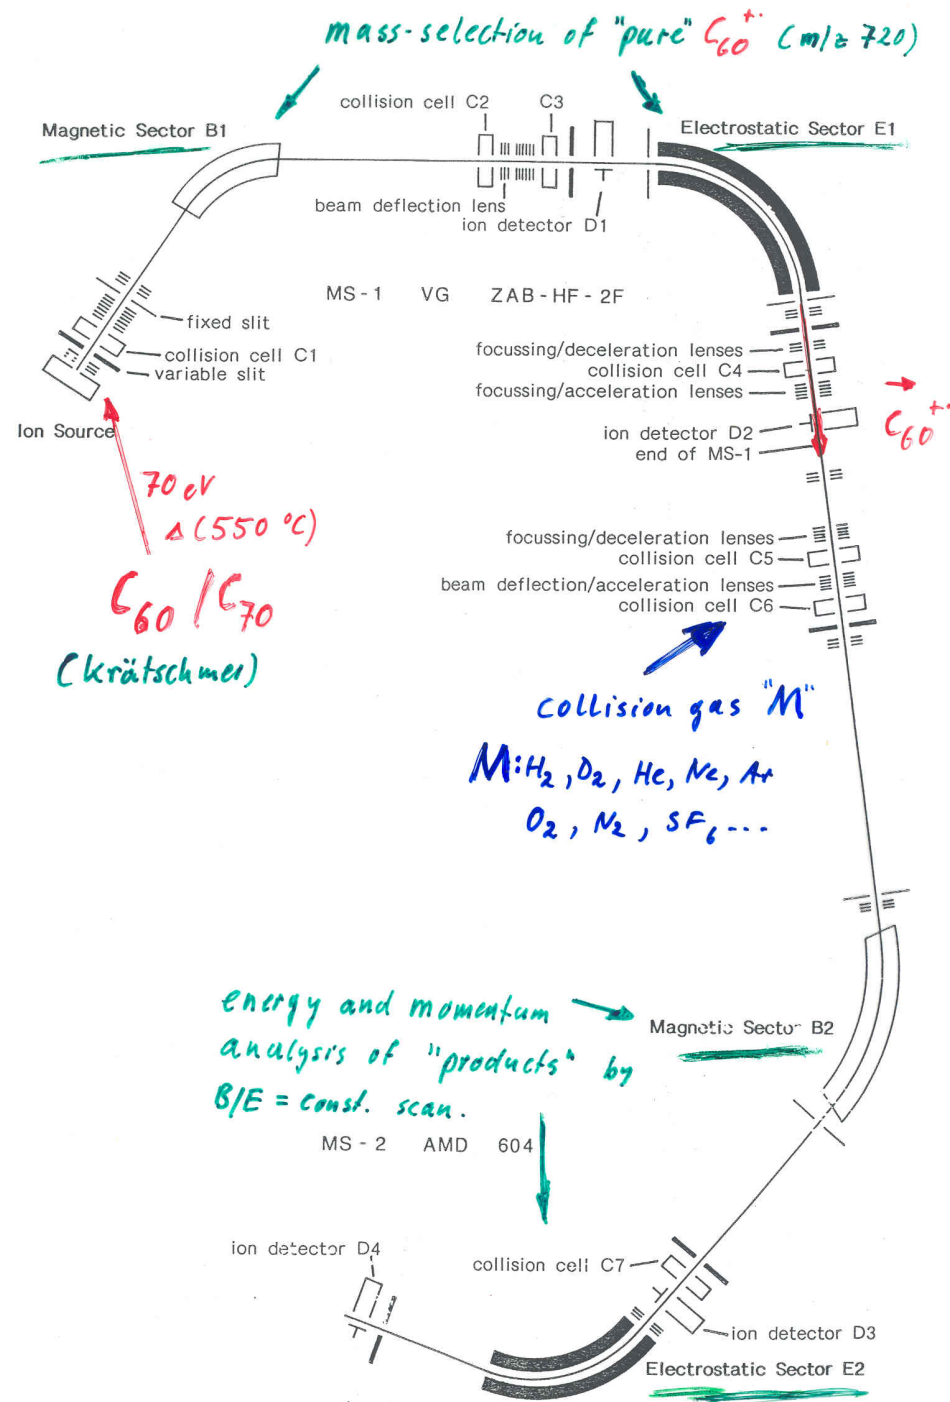 mass-selection of "pure" C60+· (m/z 720)
collision cell C2
C3
Magnetic Sector B1
Electrostatic Sector E1
beam deflection lens
ion detector D1
MS-1 VG ZAB-HF-2F
fixed slit
collision cell C1
variable slit
Ion Source
focussing/deceleration lenses
collision cell C4
focussing/acceleration lenses
C60+·
ion detector D2
end of MS-1
70 eV
Δ(550 °C)
C60/C70
(Krätschmer)
focussing/deceleration lenses
collision cell C5
beam deflection/acceleration lenses
collision cell C6
collision gas "M"
M: H2, D2, He, Ne, Ar
O2, N2, SF6 ...
energy and momentum
analysis of "products" by
B/E = const. scan.
Magnetic Sector B2
MS-2 AMD 604
ion detector D4
collision cell C7
ion detector D3
Electrostatic Sector E2